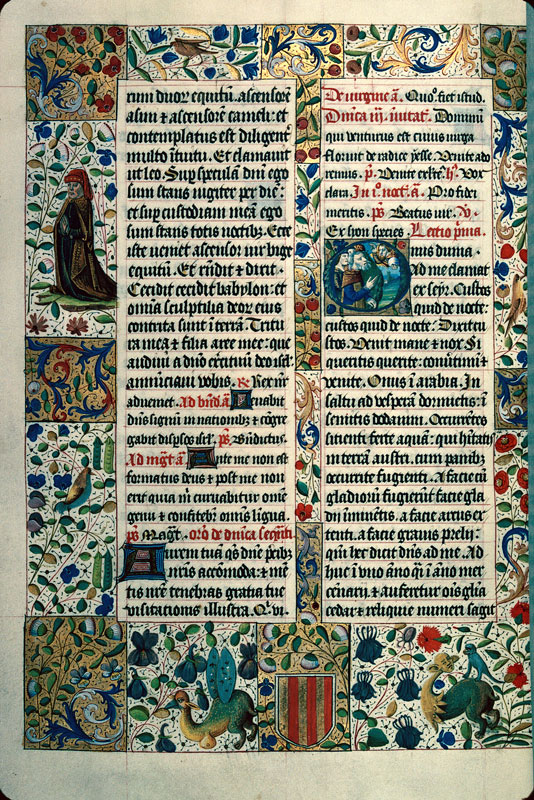 rum duor equitū. ascensorē
asini & ascensorē cameli: et
contemplatus est diligent
multo ītuitu. Et clamauit
ut leo. Sup speculā dn̄i ego
sum stans iugiter per diē:
et sup custodiam meā ego
sum stans totis noctib3. Ecce
iste ueniet ascensor uir bige
equitū. Et r̄ndit & dixit.
Cecidit cecidit babylon: et
om̄ia sculptilia deor eius
contrita sunt ī terrā. Tritu
ra mea & filia aree mee: que
audiui a dn̄o exercituū deo isrl
annūciaui vobis. R̄ Rex nr̄
adueniet. Ad bn̄d. ā Leuabit
dn̄s signū in nationib3 & cōgre
gabit dispsos isrl. p̄s. Bn̄dictus.
Ad mgt. ā Ante me non est
formatus deus & post me non
erit quia m̄ curuabitur om̄e
genu & confitebit̄ om̄is ligua.
p̄s Magt. orō de dn̄ica secūda
Aurem tuā q̄s dn̄e p̄cib3
nr̄is acōmoda: & mē
tis nr̄e tenebras gratia tue
visitationis illustra. Q. vi.
De uirgine ā. Quo. fiet istud.
Dn̄ica iij. inuitat. Dominū
qui venturus est cuius uirga
floruit de radice yesse. Venite ado
remus. p̄. Venite exlt. h̄. Vox
clara. In i. noct. ā. Pro fidei
meritis. p̄s Beatus uir. V.
Ex syon species. Lectio prīa.
Onus duma.
Ad me clamat
ex seyr. Custos
quid de nocte:
custos quid de nocte? Dixit cu
stos. Venit mane & nox. Si
queritis querite: conūtimi &
venite. Onus ī arabia. In
saltu ad vesperā dormietis: ī
semitis dodanim. Occurrētes
sitienti ferte aquā: qui hitatis
in terrā austri. cum panib3
occurrite fugienti. A facie eī
gladiorū fugierūt facie gla
dij īminētis. a facie arcus ex
tenti. a facie grauis prelij:
qm̄ hec dicit dn̄s ad me. Ad
huc ī uno āno q̄i ī āno mer
cenarij. & auferetur oīs glia
cedar: & reliquie numeri sagit